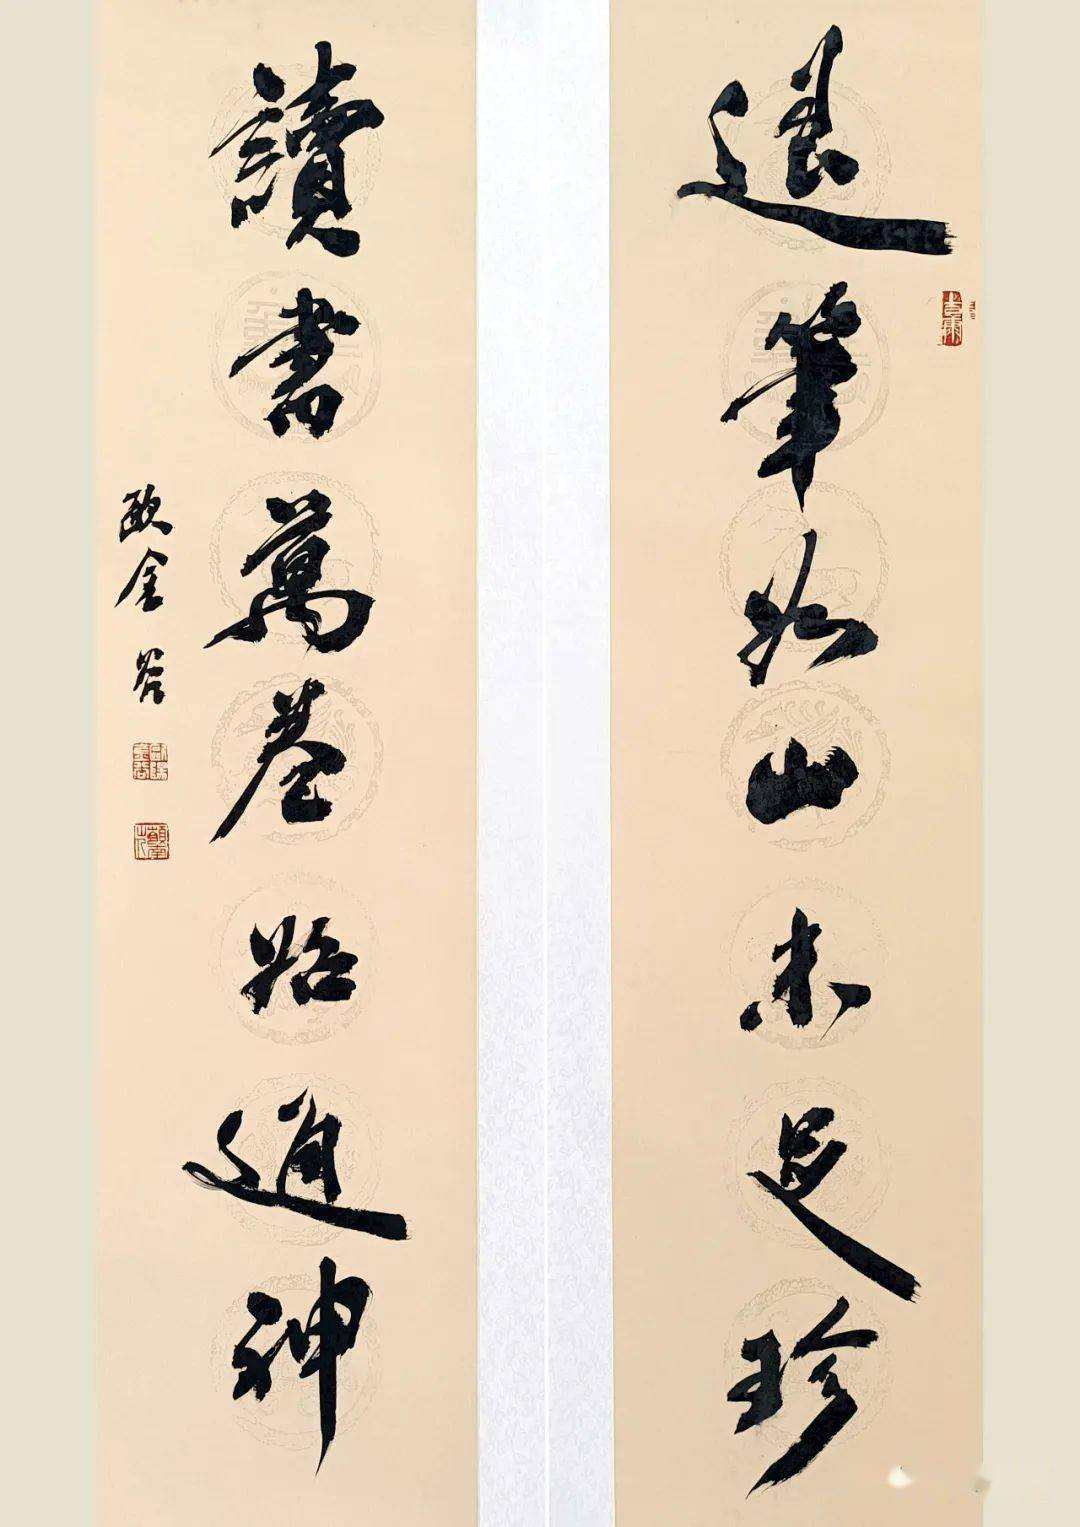 退筆如山未足珍
讀書萬卷始通神
欧金谷